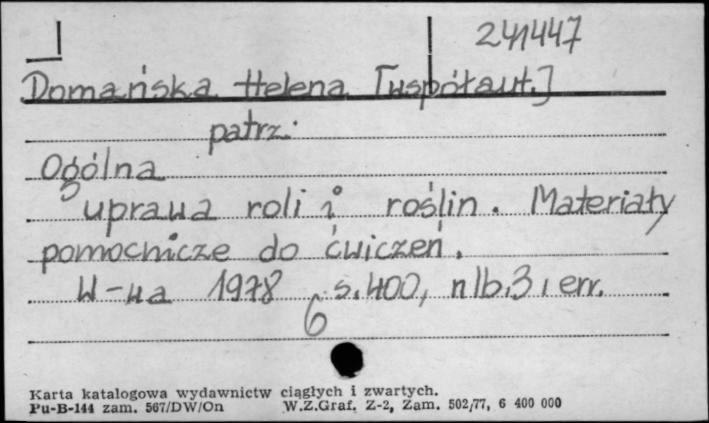 241447
Domańska Helena [współaut.]
patrz:
Ogólna
uprawa roli i roślin. Materiały
pomocnicze do ćwiczeń.
W-wa 1978 s. 400, nlb. 3, err.
6
Karta katalogowa wydawnictw ciągłych i zwartych.
Pu-B-144 zam. 567/DW/On W.Z.Graf. Z-2, Zam. 502/77, 6 400 000